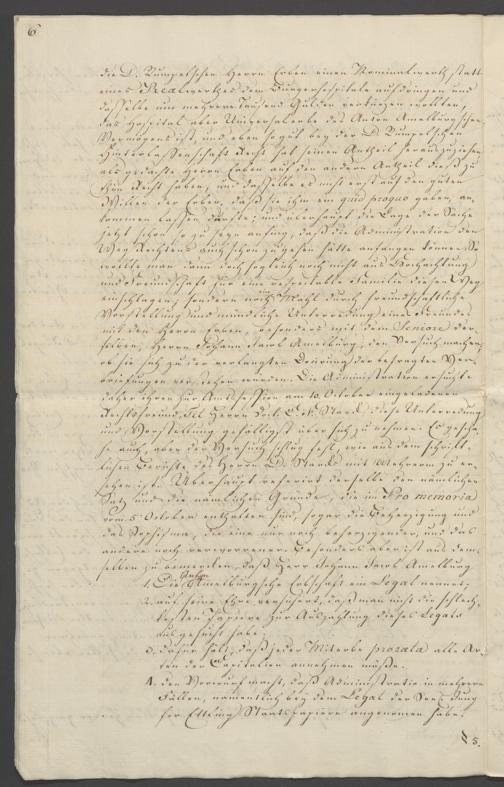 6
die D. Rumpelschen Herrn Erben einen Nominalwerth statt
eines Realwerthes dem Bürgerhospitale aufdringen und
dasselbe um mehrere Tausend Gulden verkürzen wollten,
das Hospital aber Universalerbe des Anton Amelburgschen
Vermögens ist, und eben so gut bey der D. Rumpelschen
Hinterlassenschaft Recht hat seinen Antheil herauszuziehen
als gedachte Herrn Erben auf den andern Antheil dies zu
thun Recht haben, und dasselbe es nicht erst auf den guten
Willen der Erben, daß sie ihm ein quid pro quo geben, an
kommen lassen dürfte; und überhaupt die Lage der Sache
jetzt schon so zu seyn anfing, daß die Administration den
Weg Rechtens auch schon zu gehen hätte anfangen können. So
wollte man dann doch sogleich noch nicht aus Hochachtung
und Freundschaft für eine respectable Familie diesen Weg
einschlagen; sondern noch Mahl durch freundschaftliche
Vorstellung und mündliche Unterredung eines Freundes
mit den Herrn Erben, besonders mit dem Seniore der
selben, Herrn Johann Jacob Amelburg, den Versuch machen,
ob sie sich zu der verlangten
verstehen würden. Die Administration ersuchte
daher ihren zur Amtssession am 10. October eingeladenen
Rechtsfreund Herrn Doct. Stark diese Unterredung
und Vorstellung gefälligst über sich zu nehmen. Es gescha
he auch, aber der Versuch schlug fehl, wie aus dem schrift
lichen Berichte des Herrn D. Starks mit Mehrerm zu er
sehen ist. Überhaupt referirt derselbe den nämlichen
Satz und die nämlichen Gründe, die im Pro memoria
vom 5. October enthalten sind, sogar die Beherzigung und
das Sophisma, die eine nur noch beherzigender, und das
andere noch verworrener. Besonders aber ist aus dem
selben zu bemerken, daß Herr Johann Jacob Amelburg
1. Die Anton Amelburgsche Erbschaft ein Legat nennet.
2. auf seine Ehre versichert, daß man nicht die schlech
testen Papiere zur Auszahlung dieses Legats
ausgesucht habe.
3. dafür hält, daß jeder Miterbe prorata alle Ar
ten der Capitalien annehmen müßte.
4. den Vorwurf macht, daß Administratio in mehreren
Fällen, namentlich bey dem Legat der
Ettling Staatspapiere angenommen habe.
§ 5.